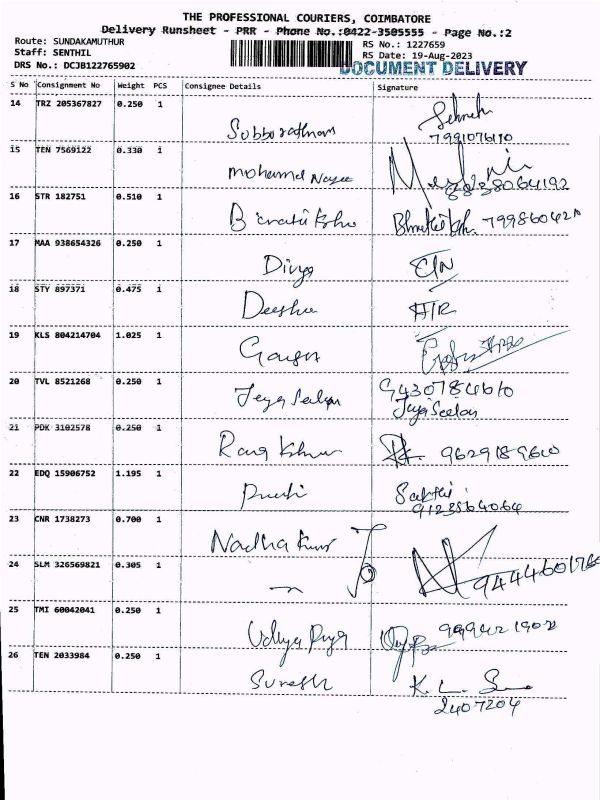 THE PROFESSIONAL COURIERS, COIMBATORE
Delivery Runsheet - PRR - Phone No.:0422-3505555 - Page No.:2
Route: SUNDAKAMUTHUR RS No.: 1227659
Staff: SENTHIL RS Date: 19-Aug-2023
DRS No.: DCJB122765902 DOCUMENT DELIVERY
S No Consignment No Weight PCS Consignee Details Signature
14 TRZ 205367827 0.250 1
Subborathnam 7991076110
15 TEN 7569122 0.330 1
mohamed
16 STR 182751 0.510 1
17 MAA 938654326 0.250 1
Divya
18 STY 897371 0.475 1
Deesha
19 KLS 804214704 1.025 1
20 TVL 8521268 0.250 1
Jeya Seelan 9430784610
Jeya Seelan
21 PDK 3102578 0.250 1
9629189610
22 EDQ 15906752 1.195 1
Sakthi
9123564064
23 CNR 1738273 0.700 1
Nadha Kumar
24 SLM 326569821 0.305 1
25 TMI 60042041 0.250 1
Vidhya Priya
26 TEN 2033984 0.250 1
Suresh K. L.
2407204